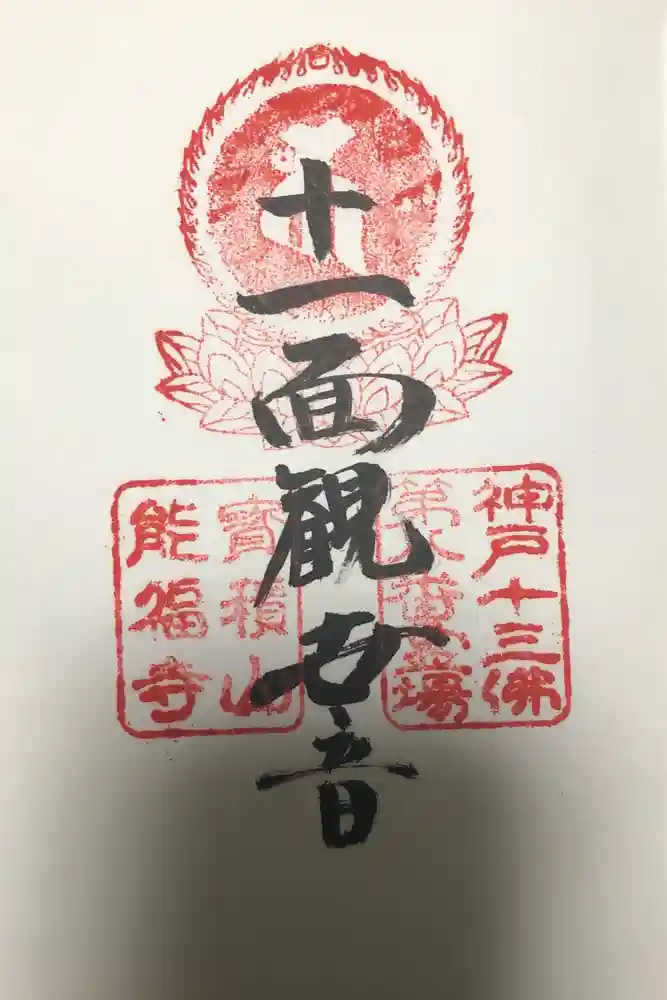 十一面観世音
神戸十三佛
第八番霊場
寳積山
能福寺